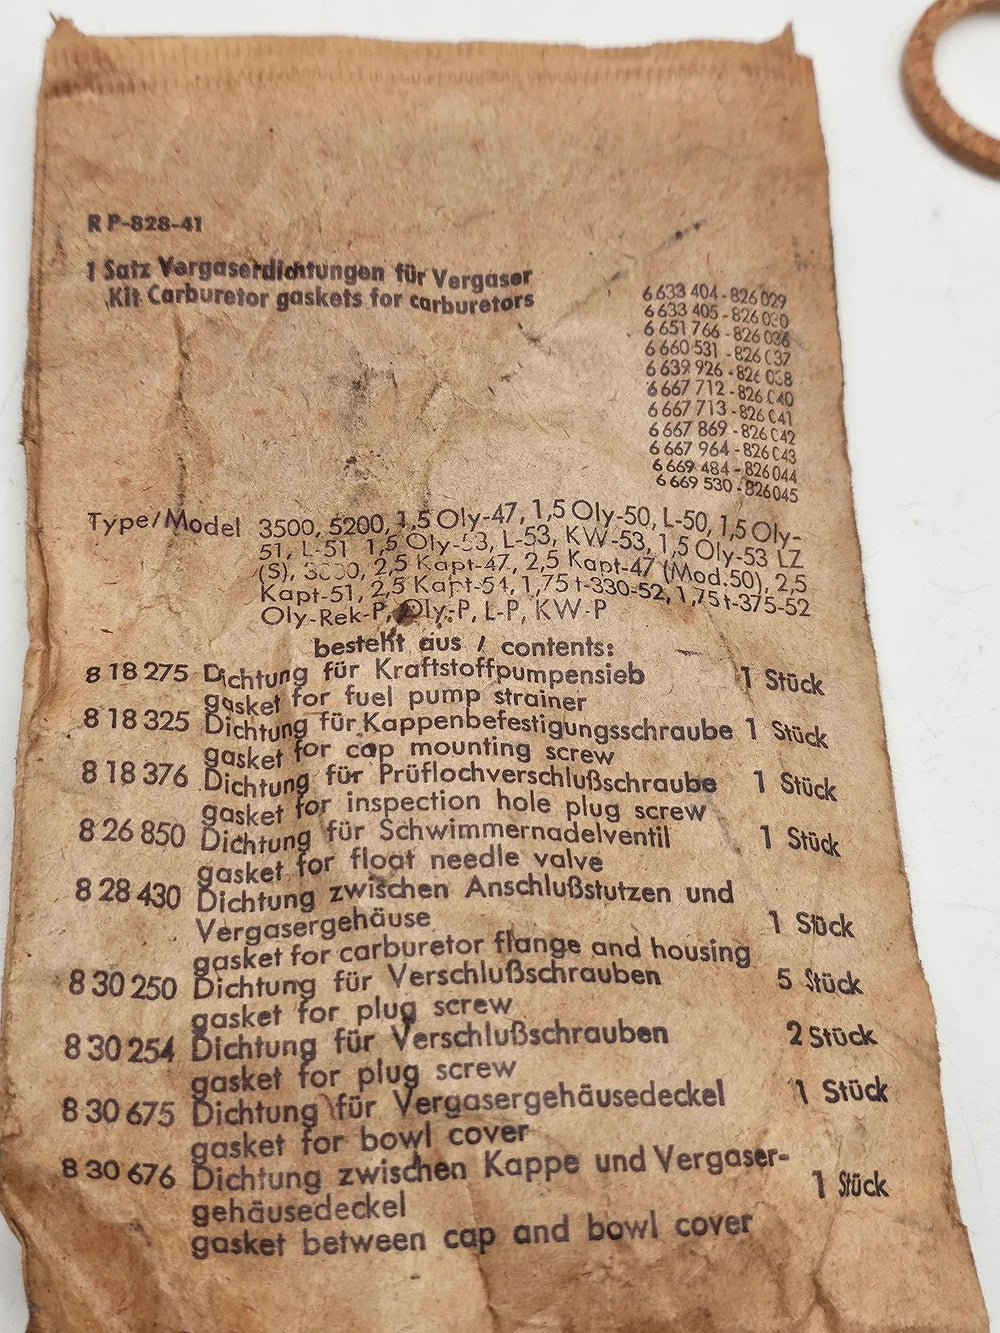 R P-828-41
1 Satz Vergaserdichtungen für Vergaser
Kit Carburetor gaskets for carburetors
6 633 404 - 826 029
6 633 405 - 826 030
6 651 766 - 826 036
6 660 531 - 826 037
6 639 926 - 826 038
6 667 712 - 826 040
6 667 713 - 826 041
6 667 869 - 826 042
6 667 964 - 826 043
6 669 484 - 826 044
6 669 530 - 826 045
Type/Model 3500, 5200, 1,5 Oly-47, 1,5 Oly-50, L-50, 1,5 Oly-
51, L-51 1,5 Oly-53, L-53, KW-53, 1,5 Oly-53 LZ
(S), 2,5 Kapt-47, 2,5 Kapt-47 (Mod.50), 2,5
Kapt-51, 2,5 Kapt-54, 1,75 t-330-52, 1,75 t-375-52
Oly-Rek-P, Oly-P, L-P, KW-P
besteht aus / contents:
8 18 275 Dichtung für Kraftstoffpumpensieb 1 Stück
gasket for fuel pump strainer
8 18 325 Dichtung für Kappenbefestigungsschraube 1 Stück
gasket for cap mounting screw
8 18 376 Dichtung für Prüflochverschlußschraube 1 Stück
gasket for inspection hole plug screw
8 26 850 Dichtung für Schwimmernadelventil 1 Stück
gasket for float needle valve
8 28 430 Dichtung zwischen Anschlußstutzen und
Vergasergehäuse 1 Stück
gasket for carburetor flange and housing
8 30 250 Dichtung für Verschlußschrauben 5 Stück
gasket for plug screw
8 30 254 Dichtung für Verschlußschrauben 2 Stück
gasket for plug screw
8 30 675 Dichtung für Vergasergehäusedeckel 1 Stück
gasket for bowl cover
8 30 676 Dichtung zwischen Kappe und Vergaser-
gehäusedeckel 1 Stück
gasket between cap and bowl cover